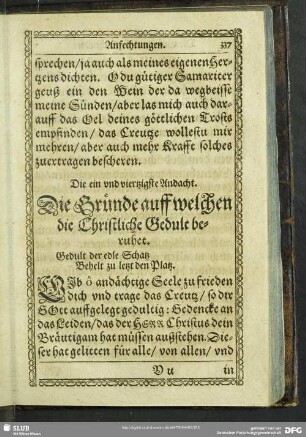 Anfechtungen. 337
sprechen/ ja auch als meines eigenen Her-
tzens dichten. O du gütiger Samariter
geuß ein den Wein der da wegbeisse
meine Sünden/ aber las mich auch dar-
auff das Oel deines göttlichen Trosts
empfinden/ das Creutze wollestu mir
mehren/ aber auch mehr Krafft solches
zuertragen bescheren.
Die ein und viertzigste Andacht.
Die Gründe auff welchen
die Christliche Gedult be-
ruhet.
Gedult der edle Schatz
Behelt zu letzt den Platz.
GIb ô andächtige Seele zu frieden
dich vnd trage das Creutz/ so dir
GOtt auffgelegt gedultig: Gedencke an
das Leiden/ das der HERR Christus dein
Bräutigam hat müssen außstehen. Die-
ser hat gelitten für alle/ von allen/ vnd
Vu in
SLUB
Wir führen Wissen.
DFG